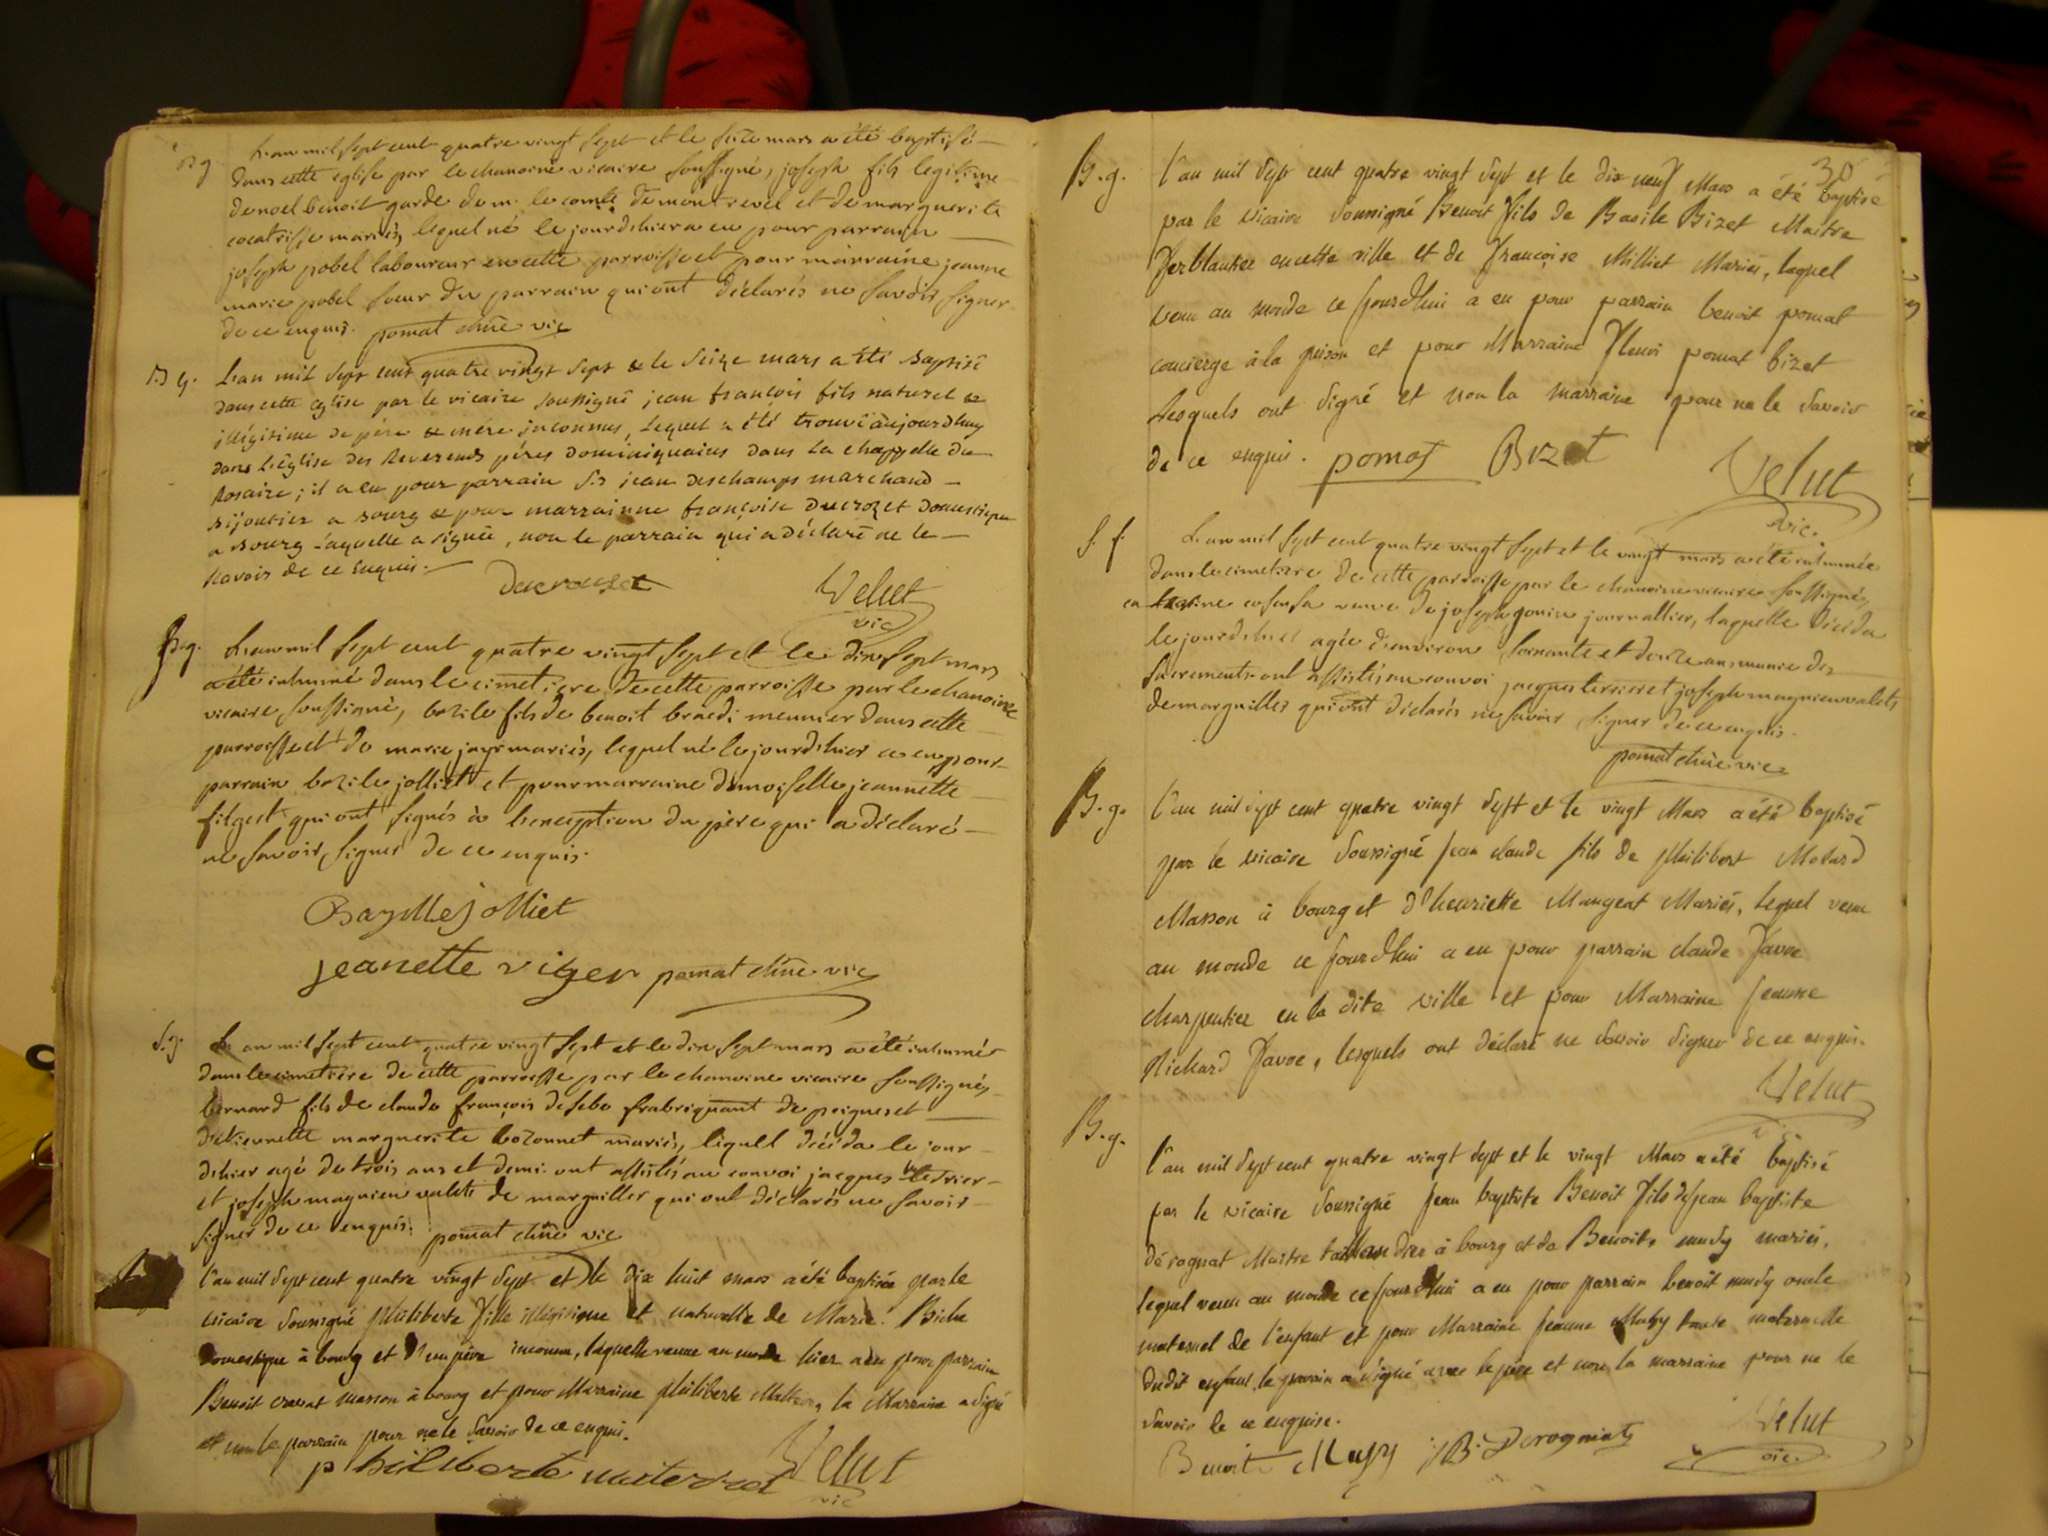 B g
L'an mil sept cent quatre vingt sept et le seize mars a été baptisé
dans cette eglise par le chanoine vicaire soussigné, joseph fils legitime
de noel benoit garde de m. le comte de montrevel et de marguerite
mariés, lequel né le jour d'hier a eu pour parrain
joseph pobel laboureur en cette parroisse et pour marraine jeanne
marie pobel soeur du parrain qui ont déclarés ne savoir signer
de ce enquis. pomat chne vic
B g.
L'an mil sept cent quatre vingt sept & le seize mars a été baptisé
dans cette eglise par le vicaire soussigné jean françois fils naturel &
illégitime de père & mère inconnus, lequel a été trouvé aujourdhuy
dans l'église des Reverends pères dominiquains dans la chappelle du
Rosaire ; il a eu pour parrain Sr jean deschamps marchand
bijoutier a bourg & pour marrainne françoise ducrozet domestique
a bourg laquelle a signée, non le parrain qui a déclaré ne le
savoir de ce enquis.
Velut
vic
B.g.
L'an mil sept cent quatre vingt sept et le dix sept mars
a été inhumé dans le cimetiere de cette parroisse par le chanoine
vicaire soussigné, bazile fils de benoit meunier dans cette
parroisse et de marie mariés, lequel né le jour d'hier a eu pour
parrain bazile jolliet et pour marraine demoiselle jeannette
qui ont signés à l'exception du père qui a déclaré
ne savoir signer de ce enquis.
Bazille jolliet
jeanette viger pomat chne vic
S.g.
L'an mil sept cent quatre vingt sept et le dix sept mars a été inhumé
dans le cimetiere de cette parroisse par le chanoine vicaire soussigné,
bernard fils de claude françois fabriquant de peignes et
d'etiennette marguerite mariés, lequel décéda le jour
d'hier agé de trois ans et demi. ont assistés au convoi jacques terrier
et joseph magnien valets de marguiller qui ont déclarés ne savoir
signer de ce enquis. pomat chne vic
L'an mil sept cent quatre vingt sept et le dix huit mars a été baptisée par le
vicaire soussigné philiberte fille illégitime et naturelle de Marie
domestique à bourg et d'un père inconnu, laquelle venue au monde hier a eu pour parrain
Benoit cravat masson à bourg et pour Marraine philiberte la Marraine a signé
et non le parrain pour ne le savoir de ce enquis.
philiberte Velut
vic
30
B.g.
L'an mil sept cent quatre vingt sept et le dix neuf Mars a été baptisé
par le vicaire soussigné Benoit fils de Basile Bizet Maitre
ferblantier en cette ville et de françoise Milliet Mariés, lequel
venu au monde ce jourd'hui a eu pour parrain benoit pomat
concierge à la prison et pour Marraine fleuri pomat bizet
lesquels ont signé et non la marraine pour ne le savoir
de ce enquis. pomat Bizet
Velut
vic.
S. f.
L'an mil sept cent quatre vingt sept et le vingt mars a été inhumée
dans le cimetiere de cette parroisse par le chanoine vicaire soussigné,
veuve de joseph gonin journallier, laquelle décéda
le jour d'hier agée d'environ soixante et douze ans munie des
sacrements. ont assistés au convoi jacques terrier et joseph magnien valets
de marguiller qui ont déclarés ne savoir signer de ce enquis.
pomat chne vic
B.g.
L'an mil sept cent quatre vingt sept et le vingt Mars a été baptisé
par le vicaire soussigné jean claude fils de philibert Molard
Masson à bourg et d'henriette Mangeat Mariés, lequel venu
au monde ce jourd'hui a eu pour parrain claude favre
charpentier en la dite ville et pour Marraine jeanne
Richard favre, lesquels ont déclaré ne savoir signer de ce enquis.
Velut
B.g.
L'an mil sept cent quatre vingt sept et le vingt Mars a été baptisé
par le vicaire soussigné jean baptiste Benoit fils de jean baptiste
dérognat Maitre taillandier à bourg et de Benoite mariés,
lequel venu au monde ce jourd'hui a eu pour parrain benoit oncle
maternel de l'enfant et pour Marraine jeanne tante maternelle
dudit enfant, le parrain a signé avec le père et non la marraine pour ne le
savoir de ce enquise.
Benoit J B. Derognat Velut
vic.